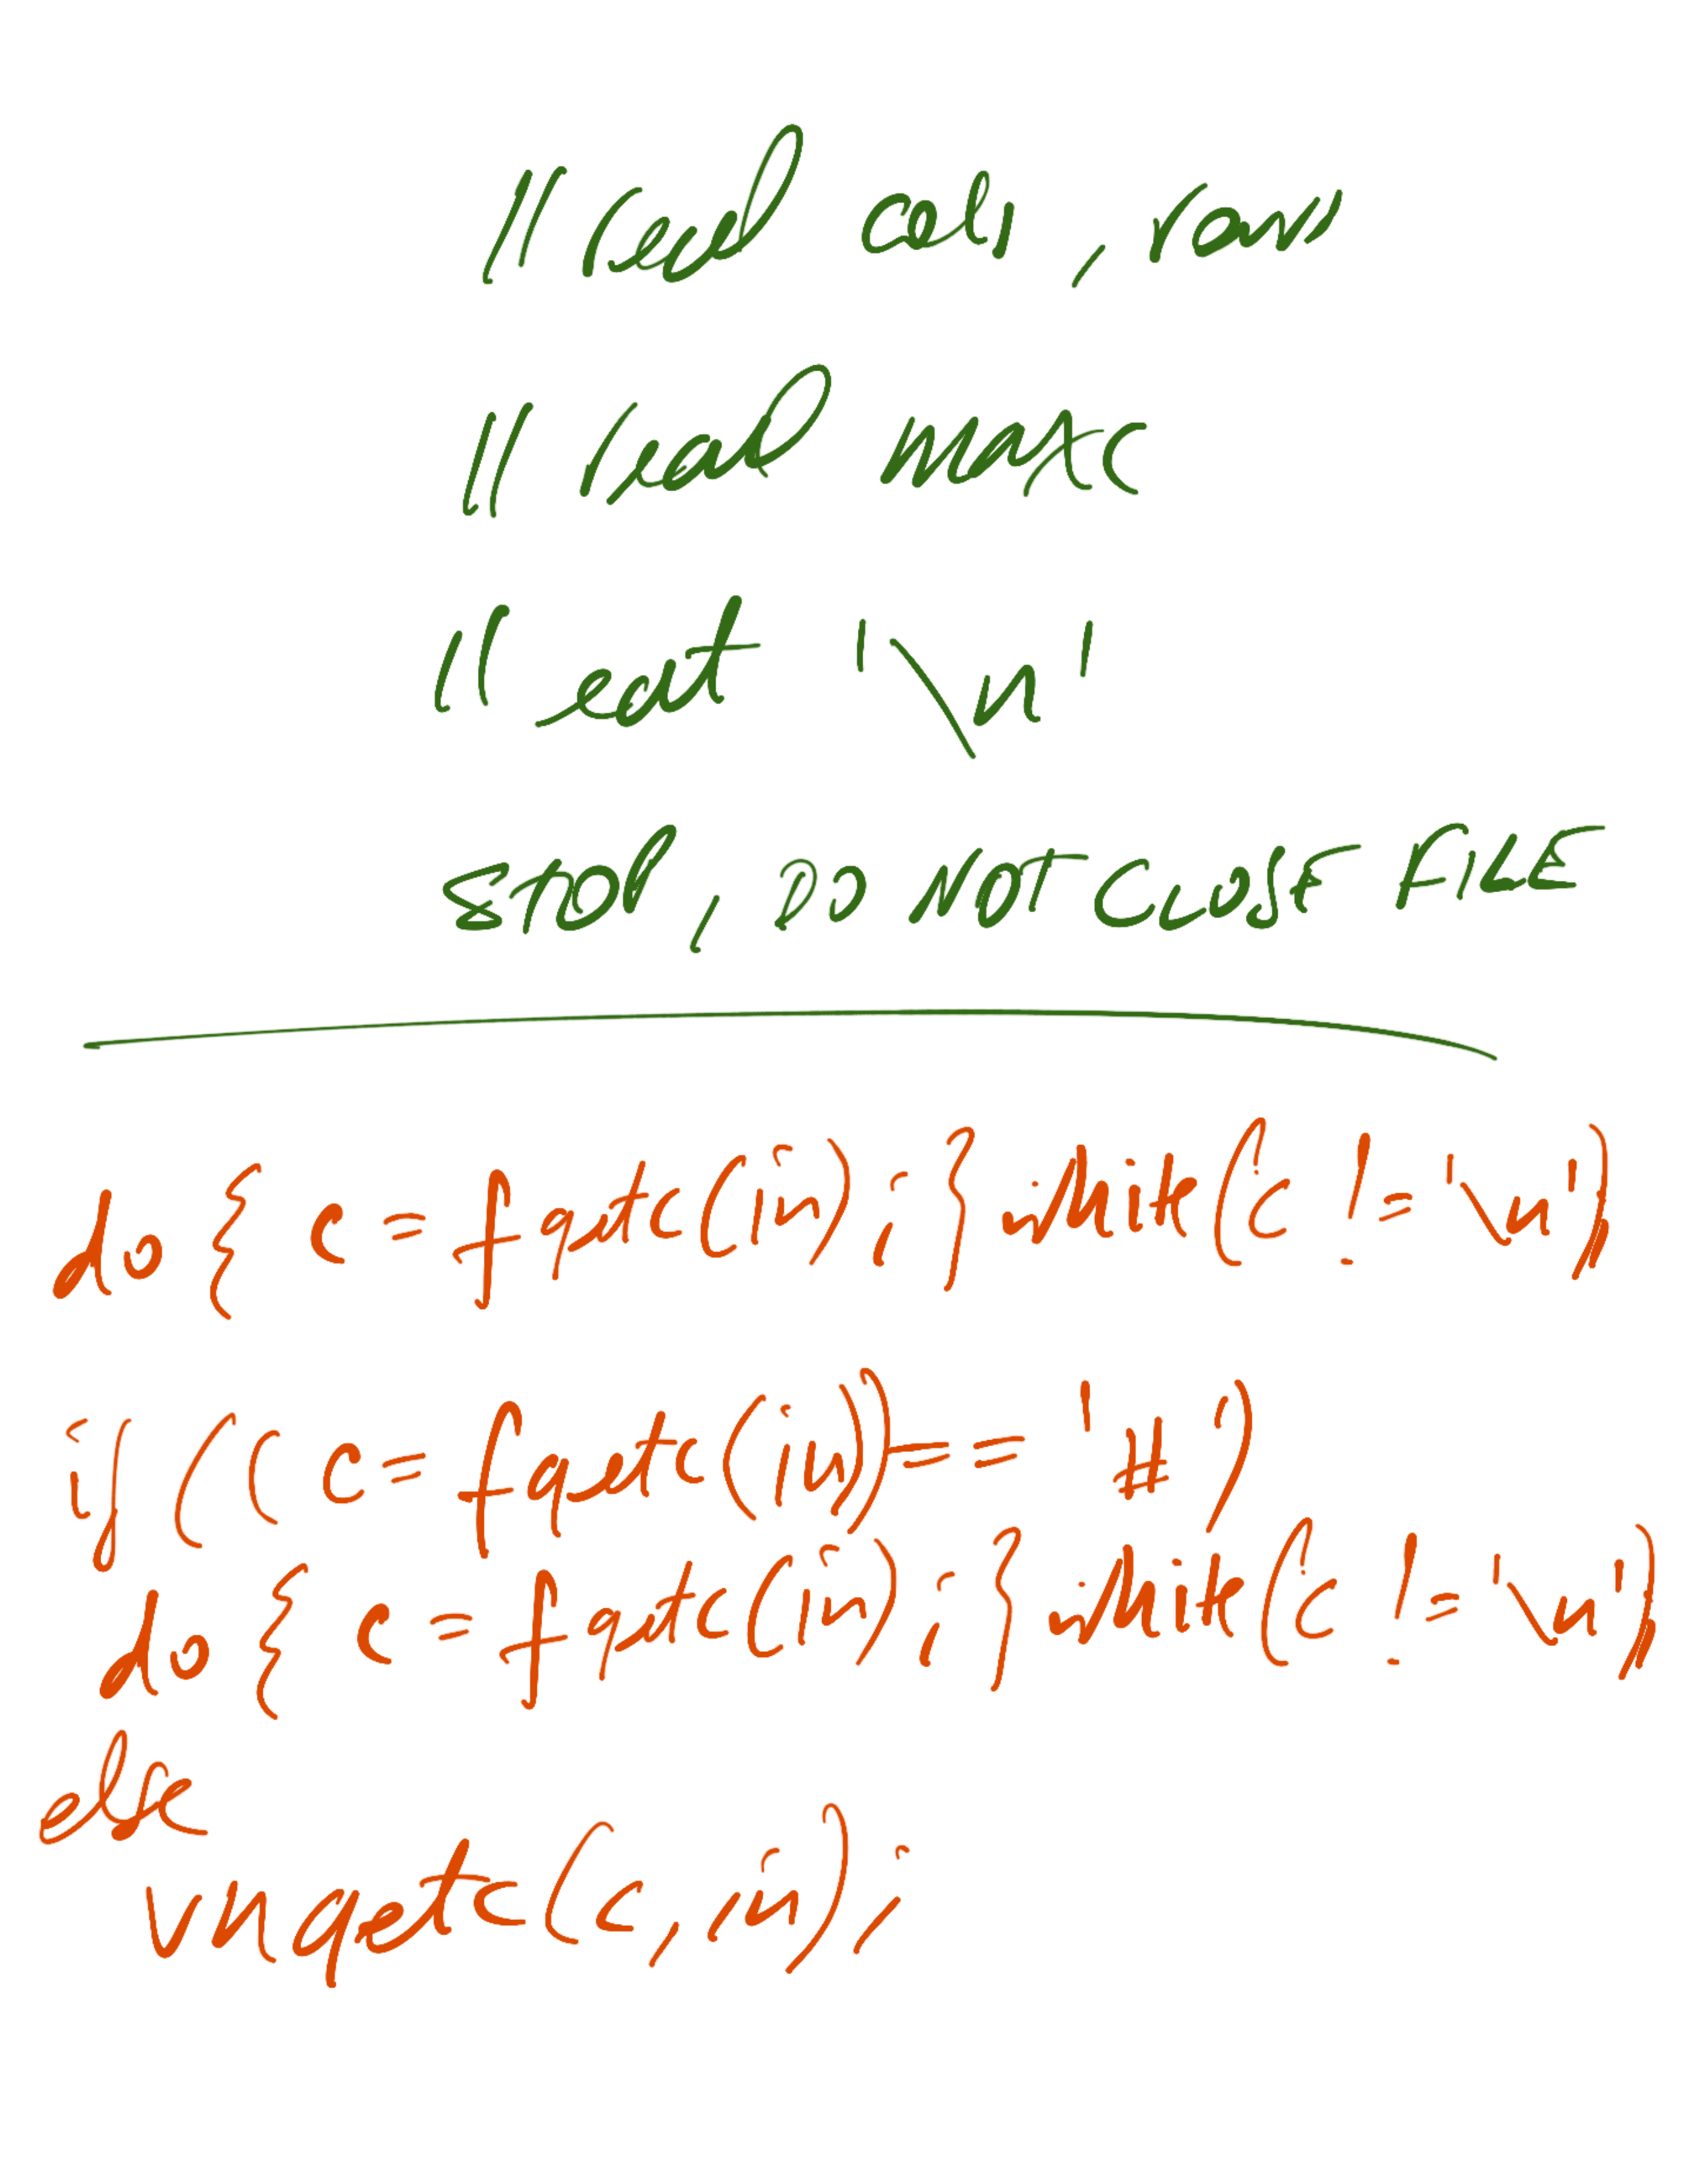 // read cols, rows
// read maxc
// eat '\n'
STOP, DO NOT CLOSE FILE
do { c = fgetc(in); } while(c != '\n')
if ((c=fgetc(in)) == '#')
do { c = fgetc(in); } while(c != '\n')
else
ungetc(c, in);